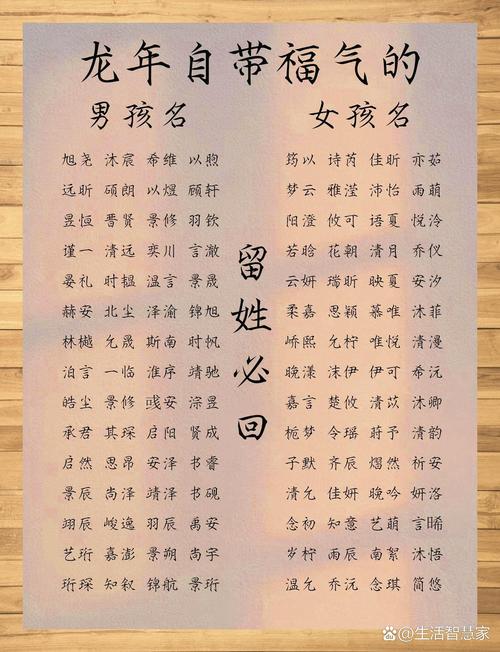 龙年自带福气的
男孩名
旭尧 沐宸 希维 以煦
远昕 硕朗 以煜 顾轩
昱恒 晋贤 景修 羽钦
谨一 清远 奕川 言澈
晏礼 时韫 温言 景晟
赫安 北尘 泽渝 锦旭
林樾 允晟 斯南 时帆
泊言 一临 淮序 靖驰
皓尘 景修 彧安 淙昱
承君 其琛 启阳 贤成
启然 思昂 安泽 书睿
景辰 尚泽 靖泽 书砚
翊辰 峻逸 羽辰 禹安
艺珩 嘉澎 景朔 尚宇
珩琛 知钗 锦航 景珩
留姓必回
女孩名
筠以 诗芮 佳昕 亦茹
梦云 雅滢 沛怡 雨萌
阳澄 攸可 语夏 悦泠
若晗 花朝 清月 乔仪
云妍 瑞昕 映夏 安汐
柔嘉 思颖 慕唯 沐菲
峤熙 允柠 唯悦 清漫
晚漾 沫伊 伊可 希沅
嘉言 楚攸 清苡 沐卿
栀梦 令瑶 莳予 清韵
子默 齐辰 熠然 祈安
清允 佳妍 晚吟 妍洛
念初 知意 艺萌 言晞
岁柠 雨辰 南絮 沐悟
温允 乔沅 念琪 简悠
生活智慧家